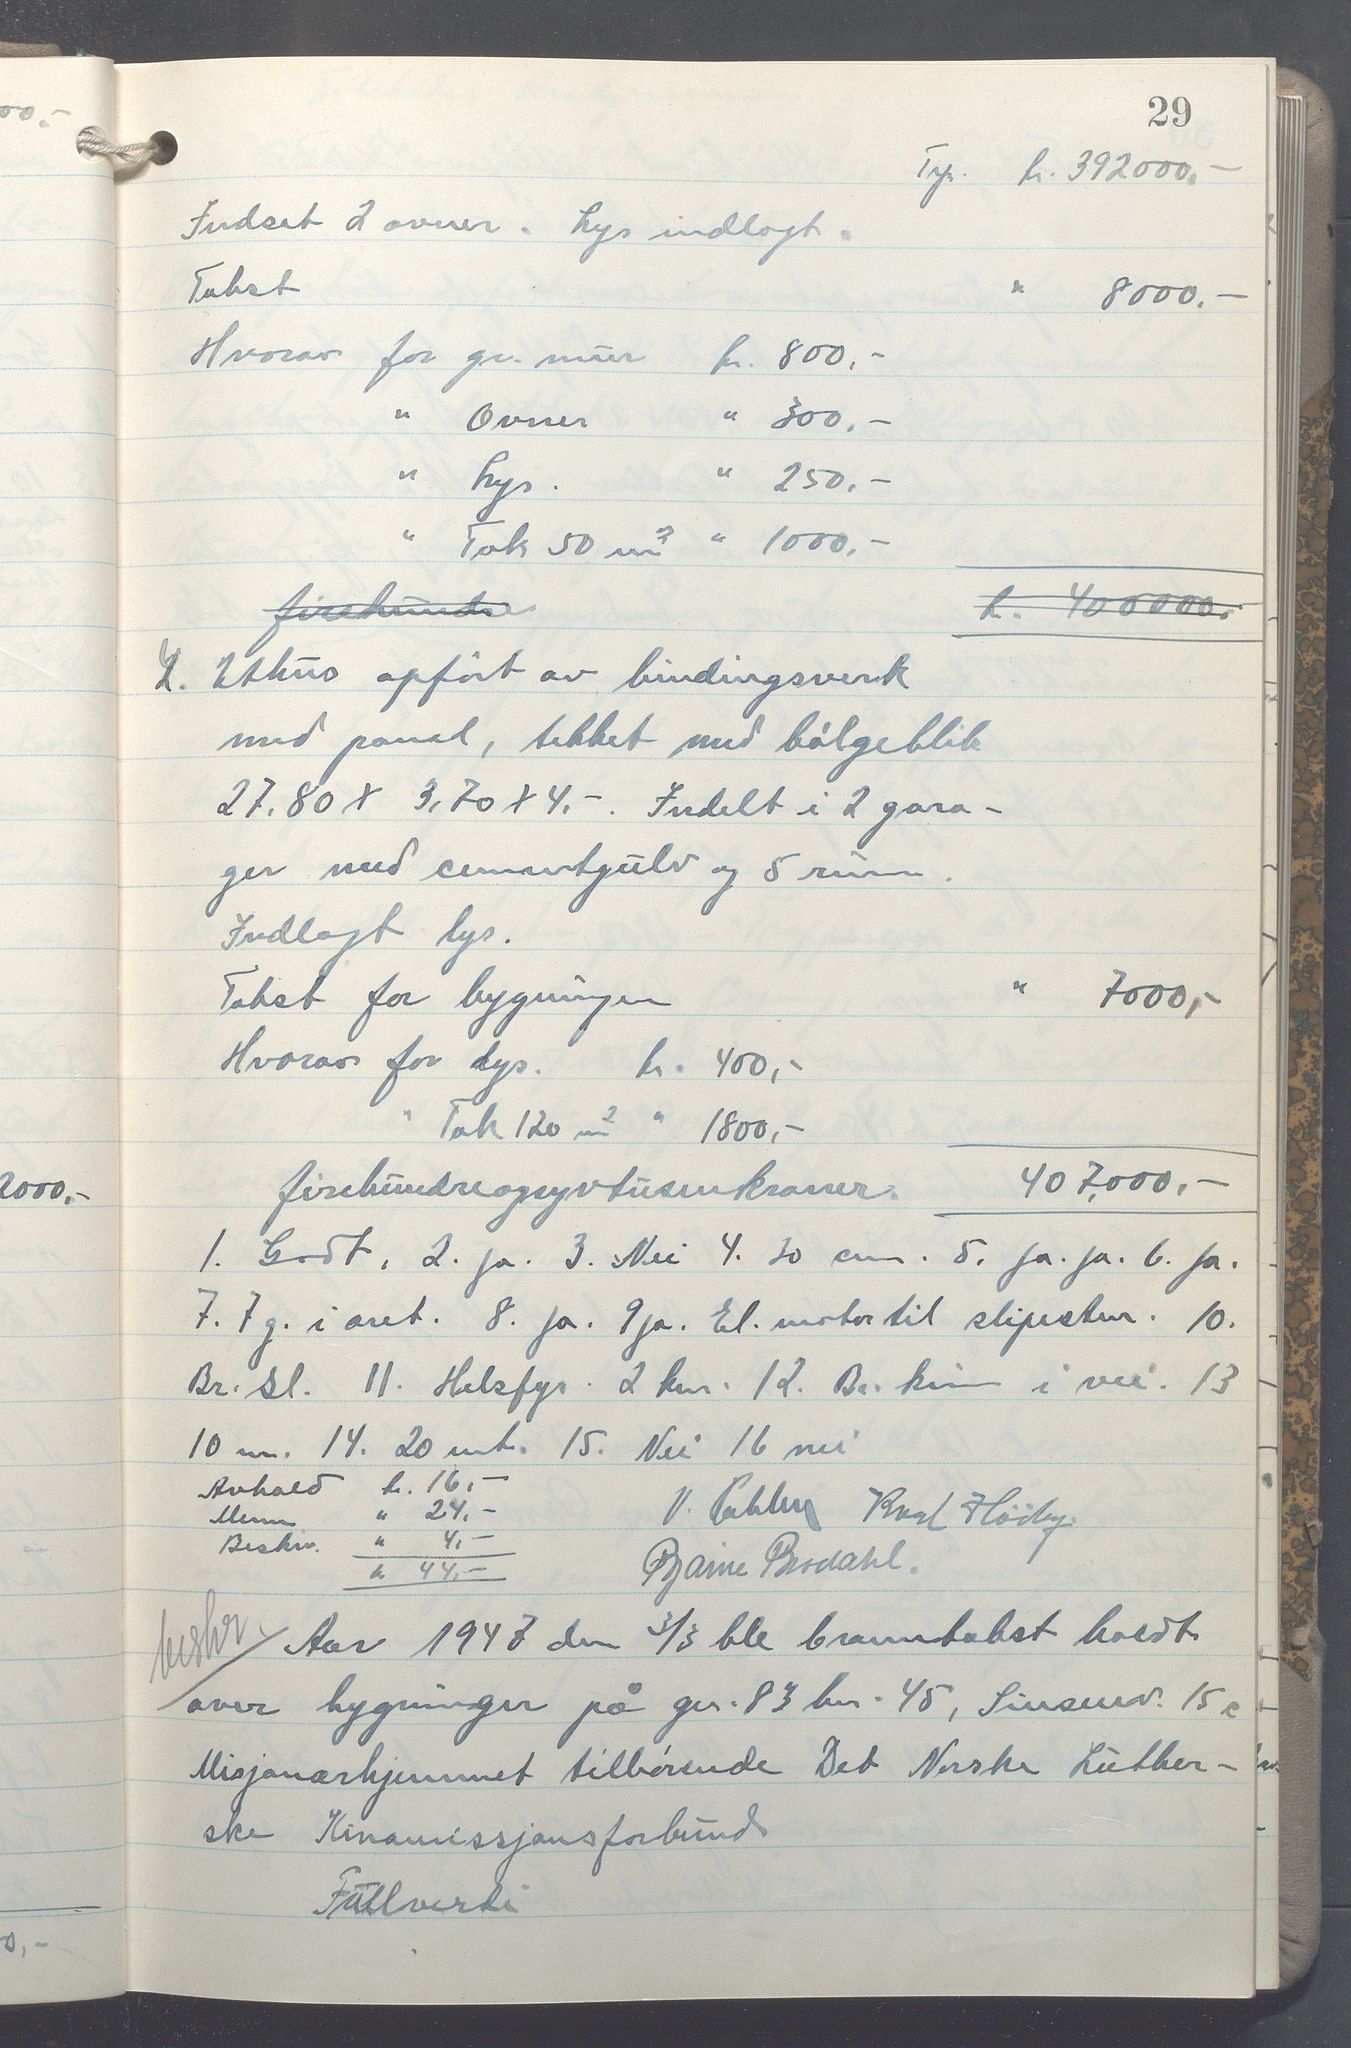 29
Trp. kr. 392000.-
Indsat 2 ovner. Lys indlagt.
Takst " 8000.-
Hvorav for gr. mur kr. 800,-
" Ovner " 300,-
" Lys. " 250,-
" Tak 50 m² " 1000,-
firehundre kr. 400000.-
4. Uthus opført av bindingsverk
med panel, tekket med bølgeblik
27,80 x 3,70 x 4,-. Indelt i 2 gara-
ger med cementgulv og 5 rum.
Indlagt lys.
Takst for bygningen " 7000,-
Hvorav for lys. kr. 400,-
" Tak 120 m² " 1800,-
firehundreogsyvtusenkroner. 407,000,-
1. Godt, 2. ja. 3. Nei 4. 30 cm. 5. ja. ja. 6. ja.
7. 7 g. i året. 8. ja. 9 ja. El. motor til slipesten. 10.
Br. sl. 11. Helsfyr. 2 km. 12. Br. kum i vei. 13
10 m. 14. 20 mt. 15. Nei 16 nei
Avhold kr. 16,-
Menn " 24,-
Beskr. " 4,-
kr. 44,-
Bjarne Brodahl.
beskr.
Aar 1947 den 3/3 ble branntakst holdt
over bygninger på gr. 83 br. 45, Sinsenv. 15
Misjonærhjemmet tilhørende Det Norske Luther-
ske Kinamissjonsforbund
Fullverdi